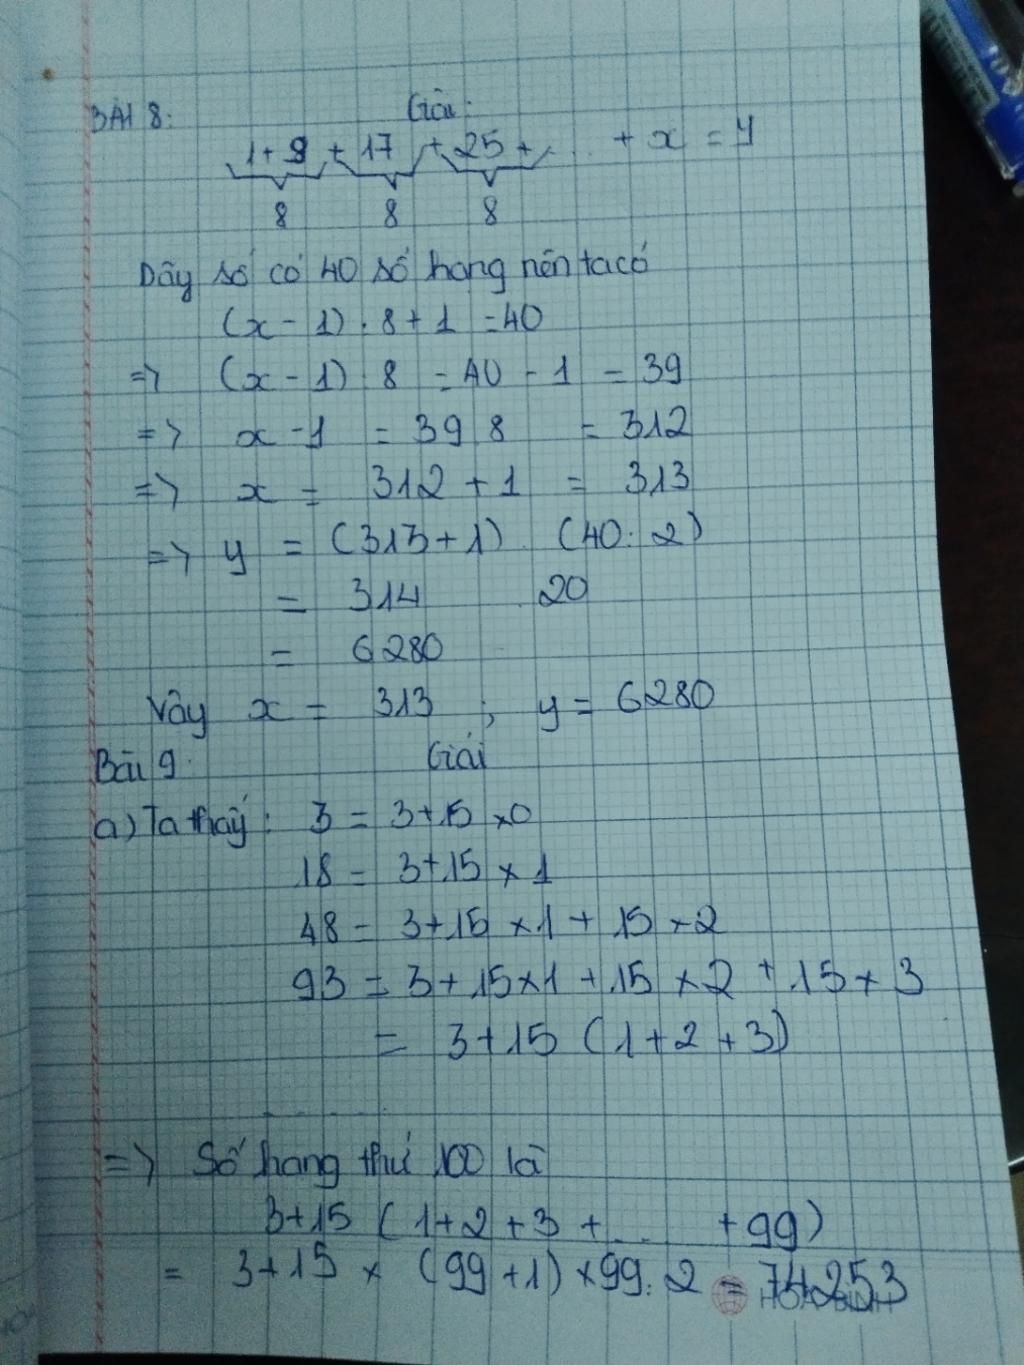 BÀI 8: Giải:
1 + 9 + 17 + 25 + ... + x = y
8 8 8
Dãy số có 40 số hạng nên ta có
(x - 1) : 8 + 1 = 40
=> (x - 1) : 8 = 40 - 1 = 39
=> x - 1 = 39 . 8 = 312
=> x = 312 + 1 = 313
=> y = (313 + 1) . (40 : 2)
= 314 . 20
= 6280
Vậy x = 313 ; y = 6280
Bài 9: Giải
a) Ta thấy: 3 = 3 + 15 × 0
18 = 3 + 15 × 1
48 = 3 + 15 × 1 + 15 × 2
93 = 3 + 15 × 1 + 15 × 2 + 15 × 3
= 3 + 15 (1 + 2 + 3)
.........
=> Số hạng thứ 100 là
3 + 15 (1 + 2 + 3 + ... + 99)
= 3 + 15 × (99 + 1) × 99 : 2 = 74253